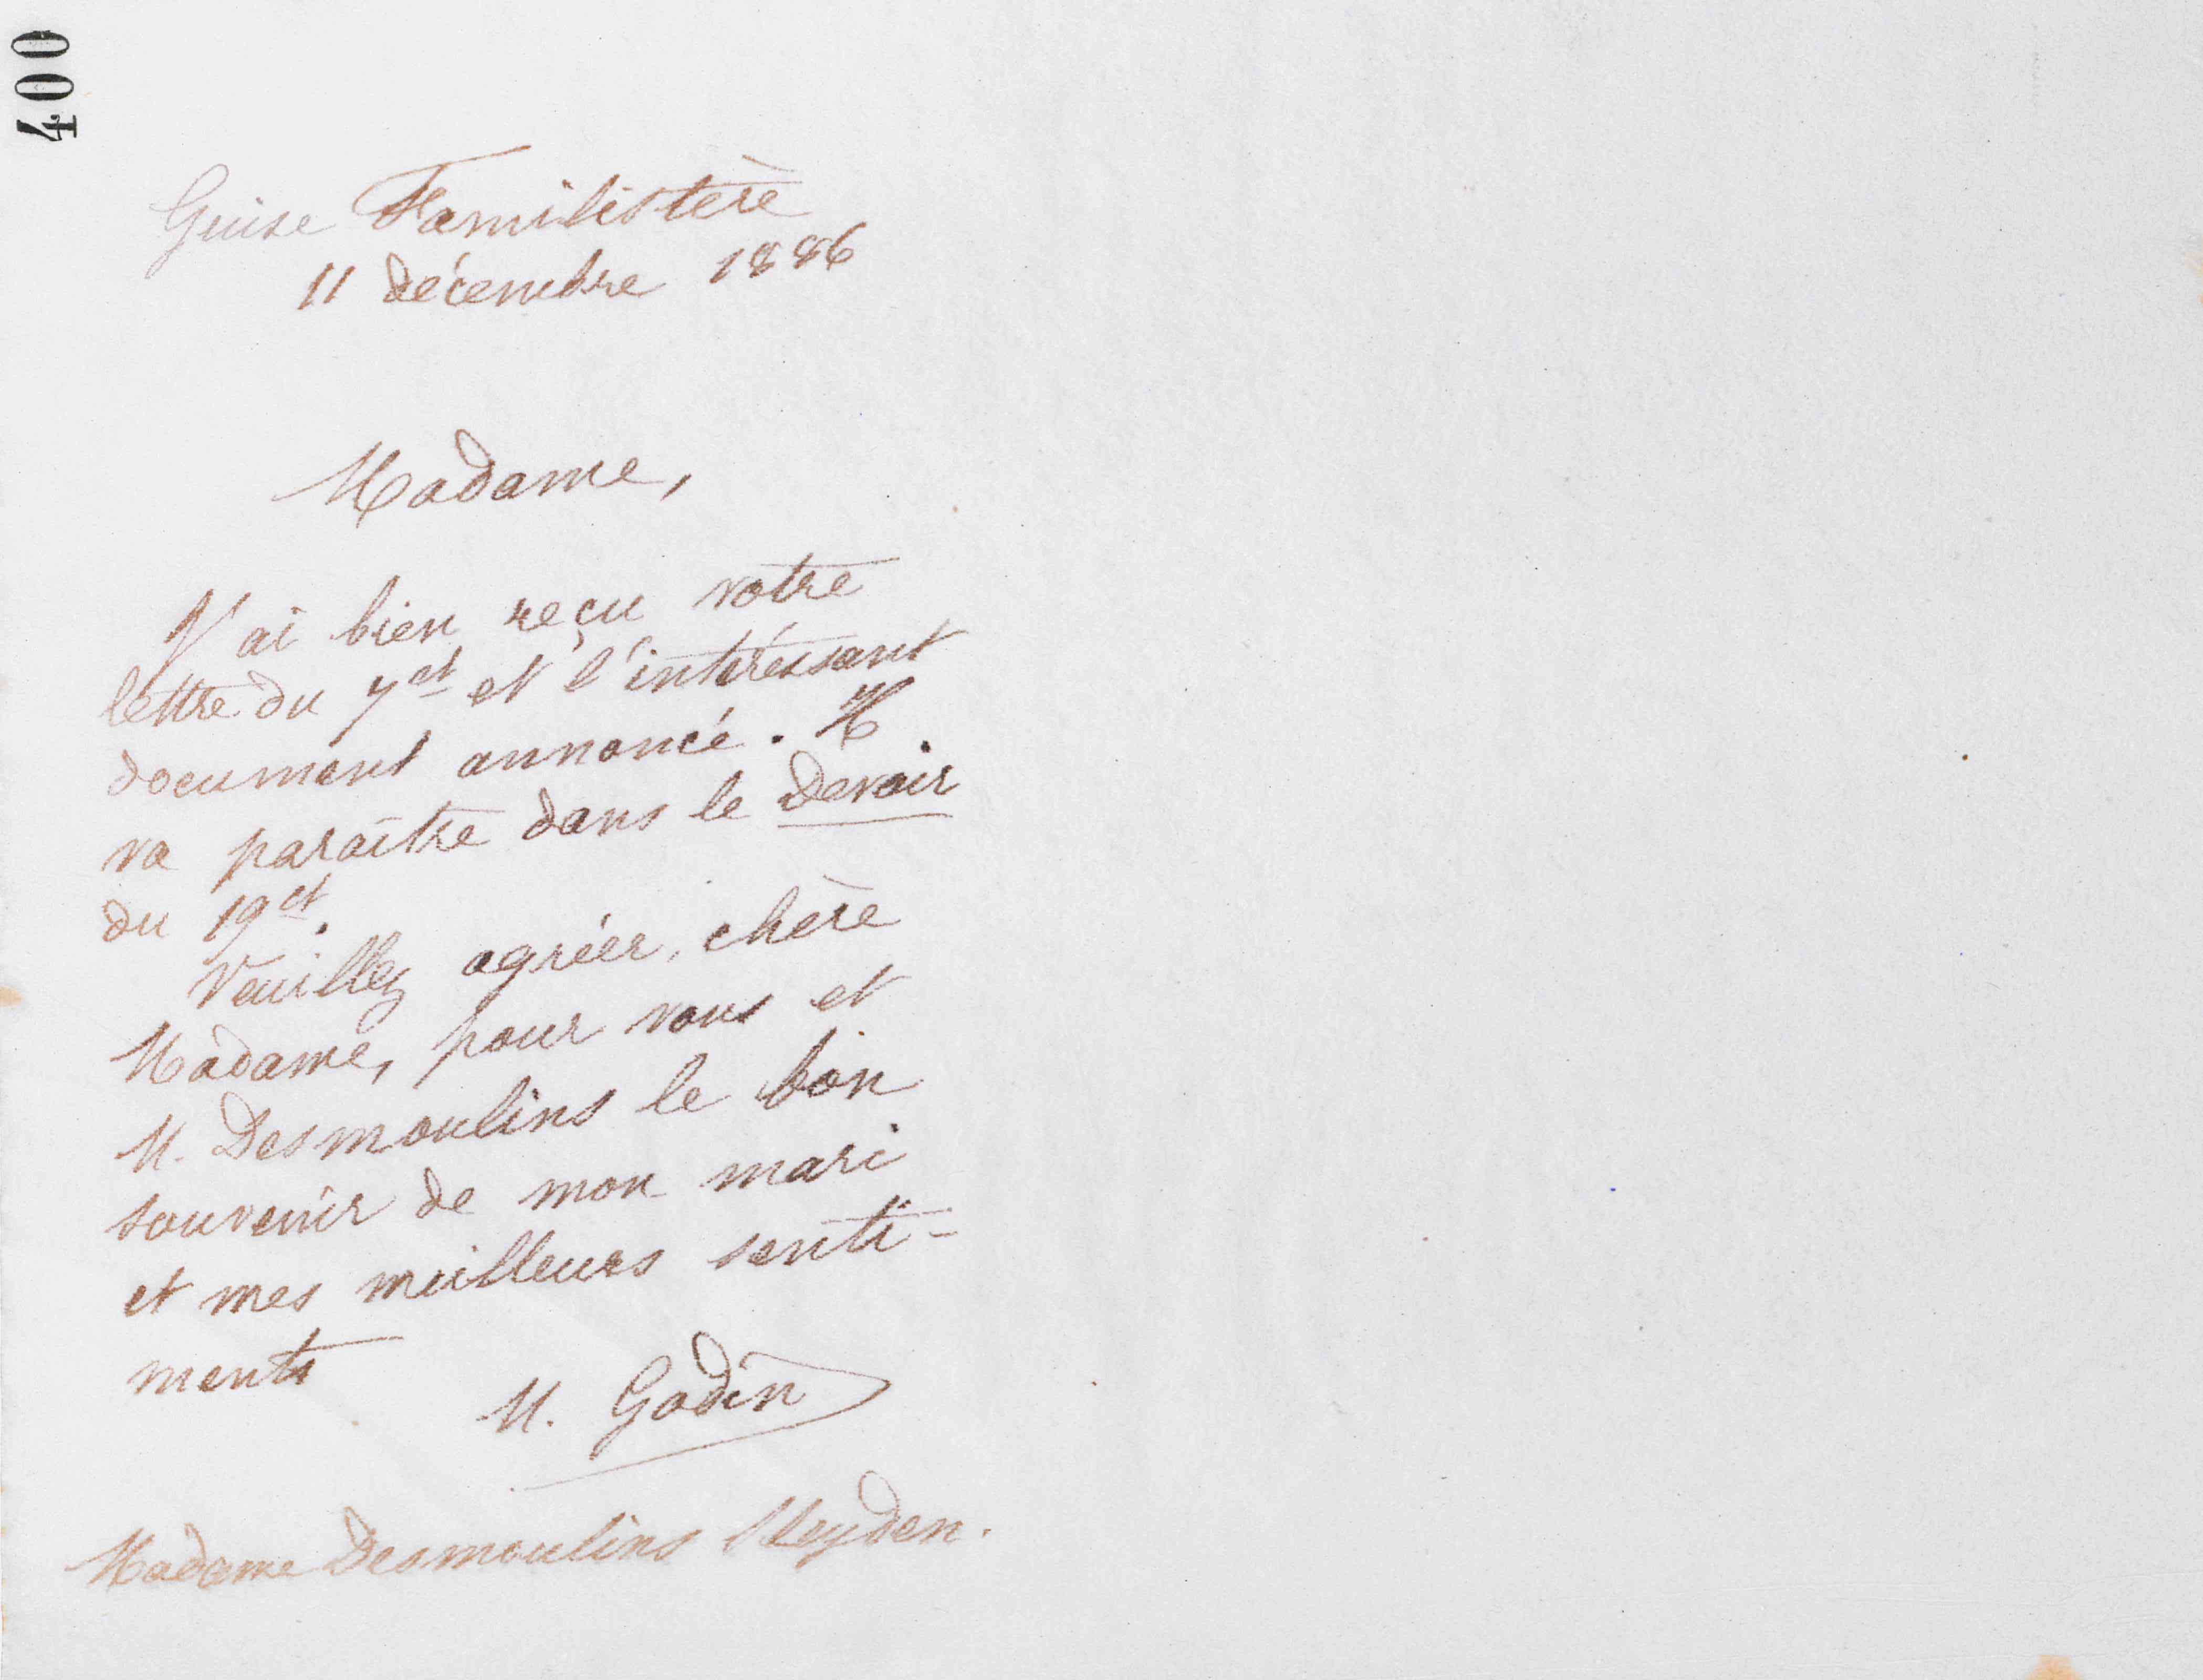 400
Guise Familistère
11 décembre 1886
Madame,
J'ai bien reçu votre
lettre du 7 ct et l'intéressant
document annoncé. Il
va paraître dans le Devoir
du 19 ct.
Veuillez agréer, chère
Madame, pour vous et
M. Desmoulins le bon
souvenir de mon mari
et mes meilleurs senti-
ments
M. Godin
Madame Desmoulins